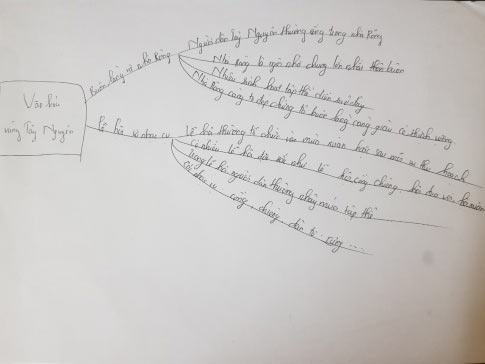 Văn hóa
vùng Tây Nguyên
Buôn làng và nhà Rông
Người dân Tây Nguyên thường sống trong nhà Rông
Nhà rông là ngôi nhà chung lớn nhất thôn buôn
Nhiều sinh hoạt tập thể diễn ra ở đây
Nhà Rông càng to đẹp chứng tỏ buôn làng càng giàu có thịnh vượng
Lễ hội và nhạc cụ
Lễ hội thường tổ chức vào mùa xuân hoặc sau mỗi vụ thu hoạch
Có nhiều lễ hội đặc sắc như lễ hội cồng chiêng, hội đua voi,
Trong lễ hội người dân thường nhảy múa tập thể
Có nhạc cụ cồng, chiêng, đàn tơ rưng ...